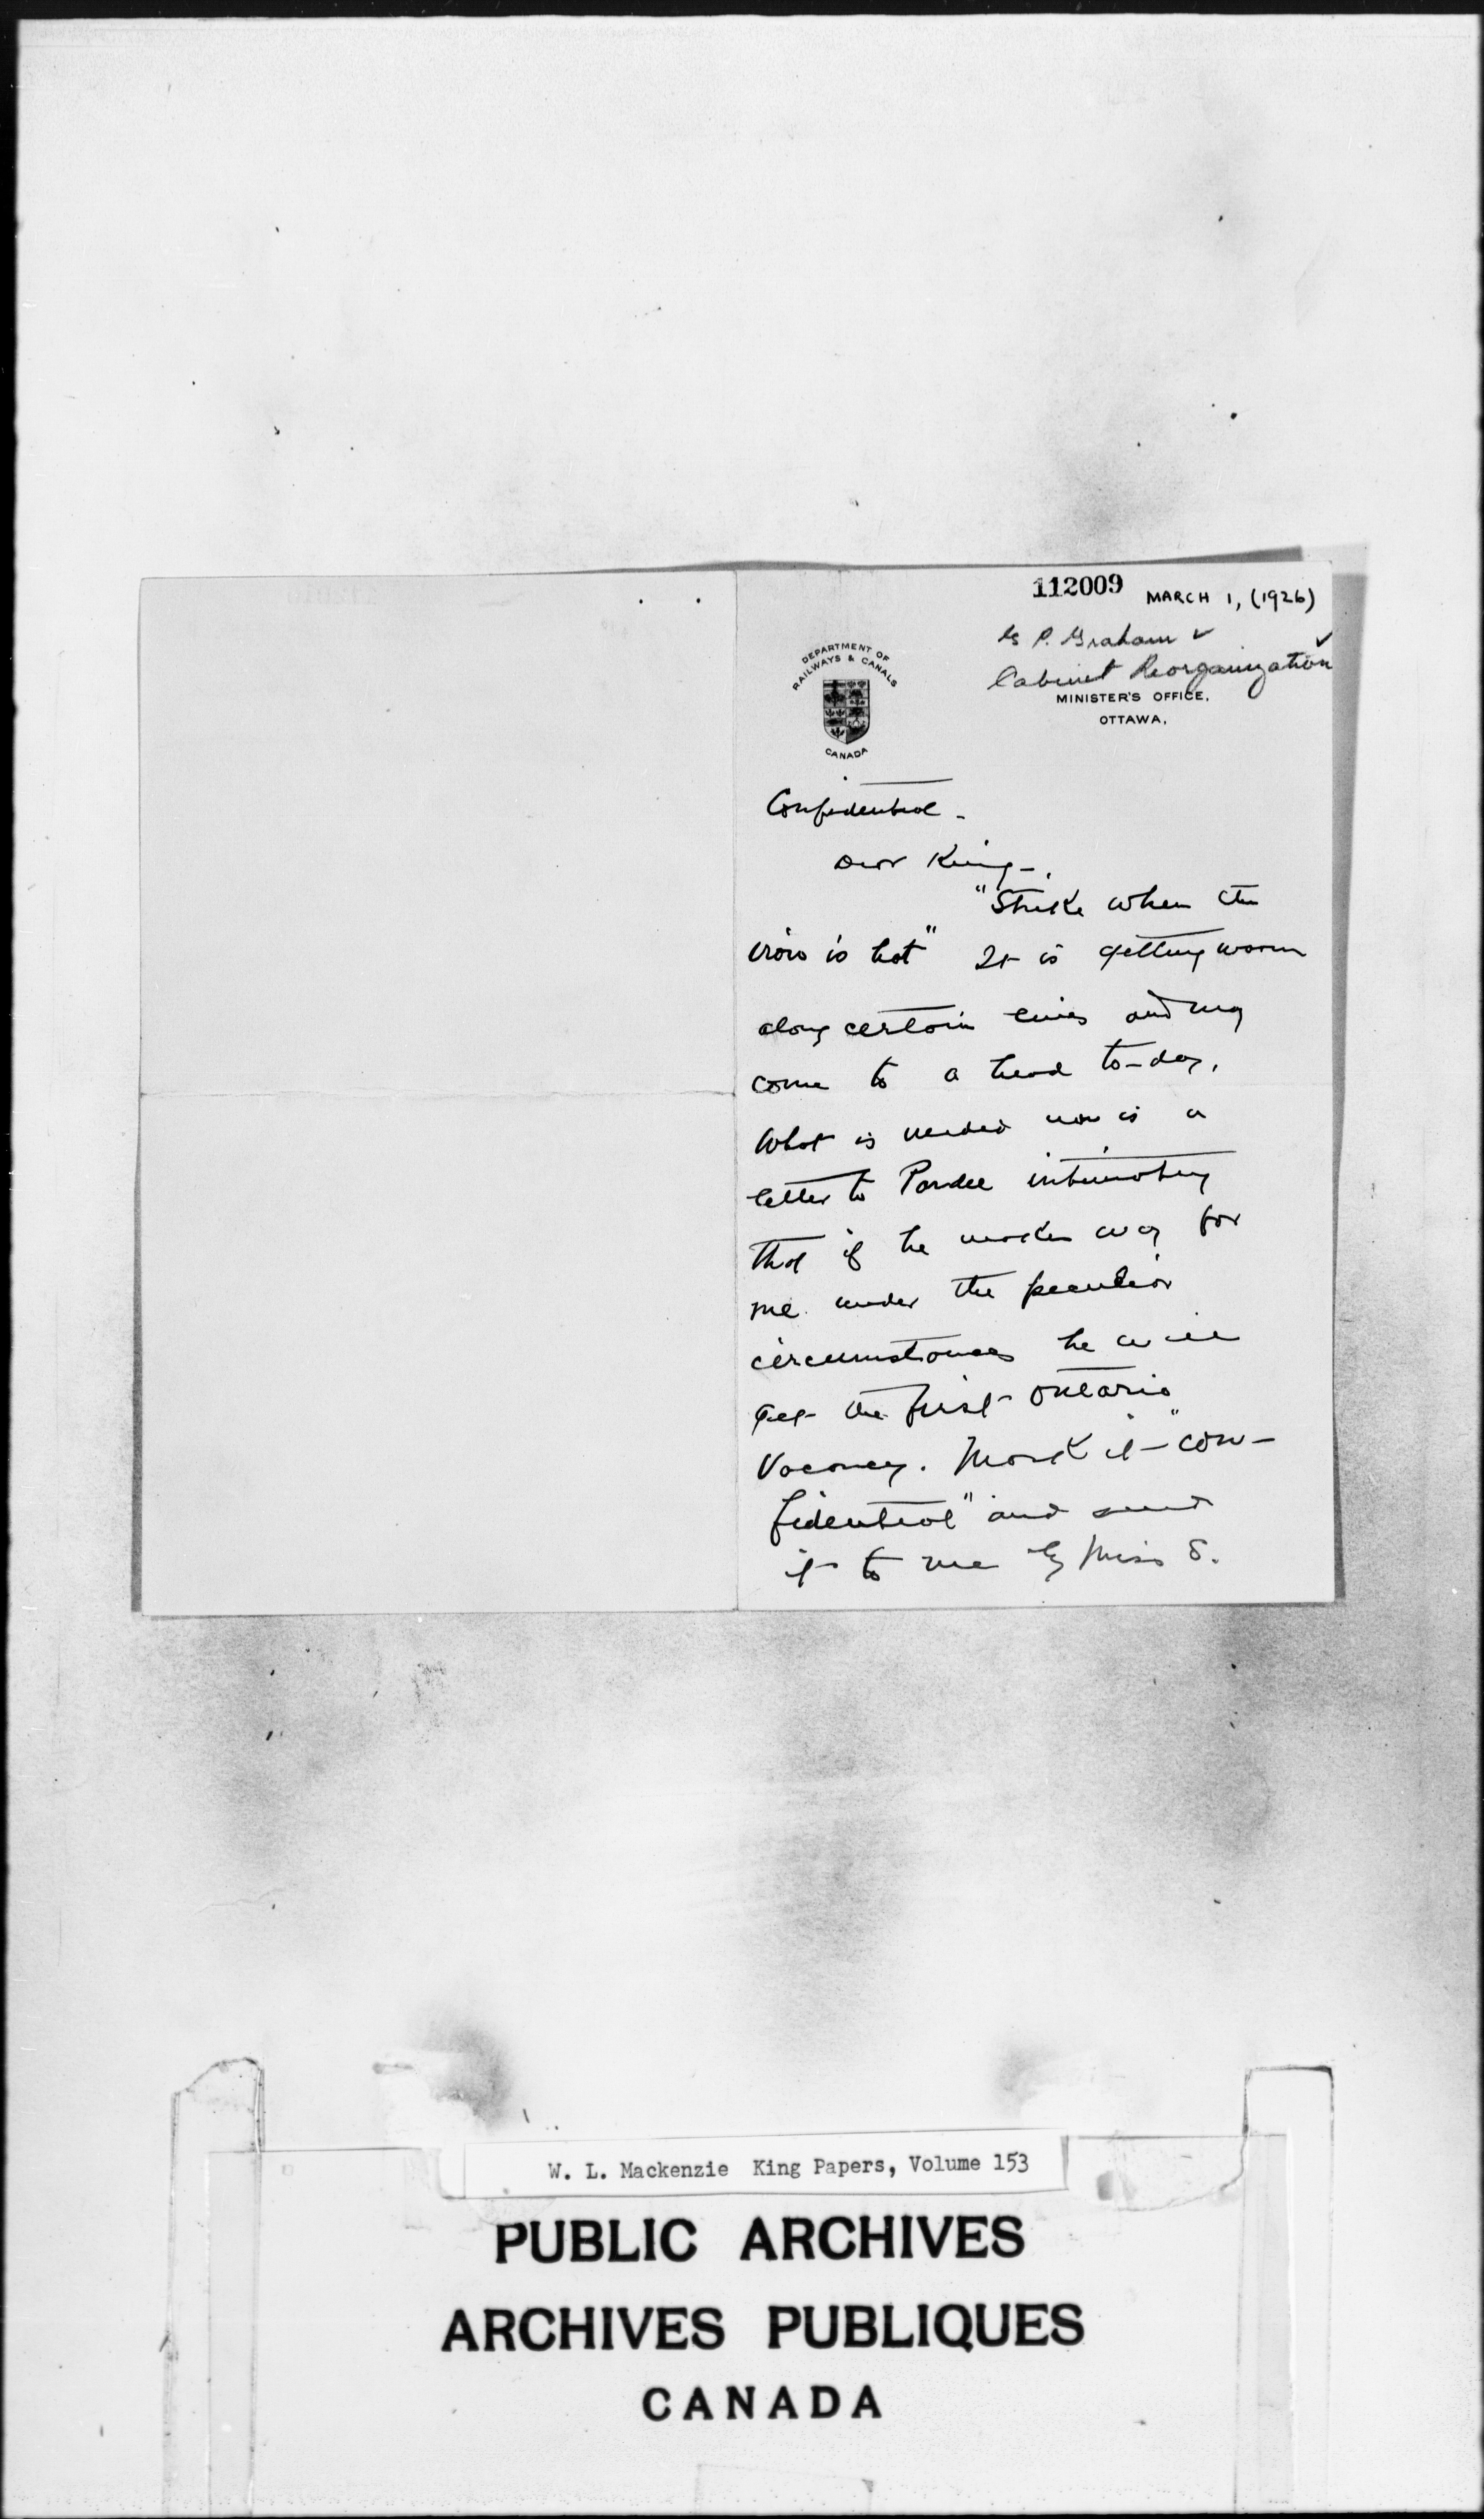 112009 MARCH 1, (1926)
G P. Graham ✓
Cabinet Reorganization ✓
DEPARTMENT OF
RAILWAYS & CANALS
CANADA
MINISTER'S OFFICE,
OTTAWA.
Confidential -
Dear King -
"Strike when the
iron is hot" It is getting warm
along certain lines and may
come to a head to-day.
What is needed now is a
letter to Pardee intimating
that if he makes way for
me under the peculiar
circumstances he will
get the first Ontario
Vacancy. Mark it "con-
fidential" and send
it to me by Miss S.
W. L. Mackenzie King Papers, Volume 153
PUBLIC ARCHIVES
ARCHIVES PUBLIQUES
CANADA